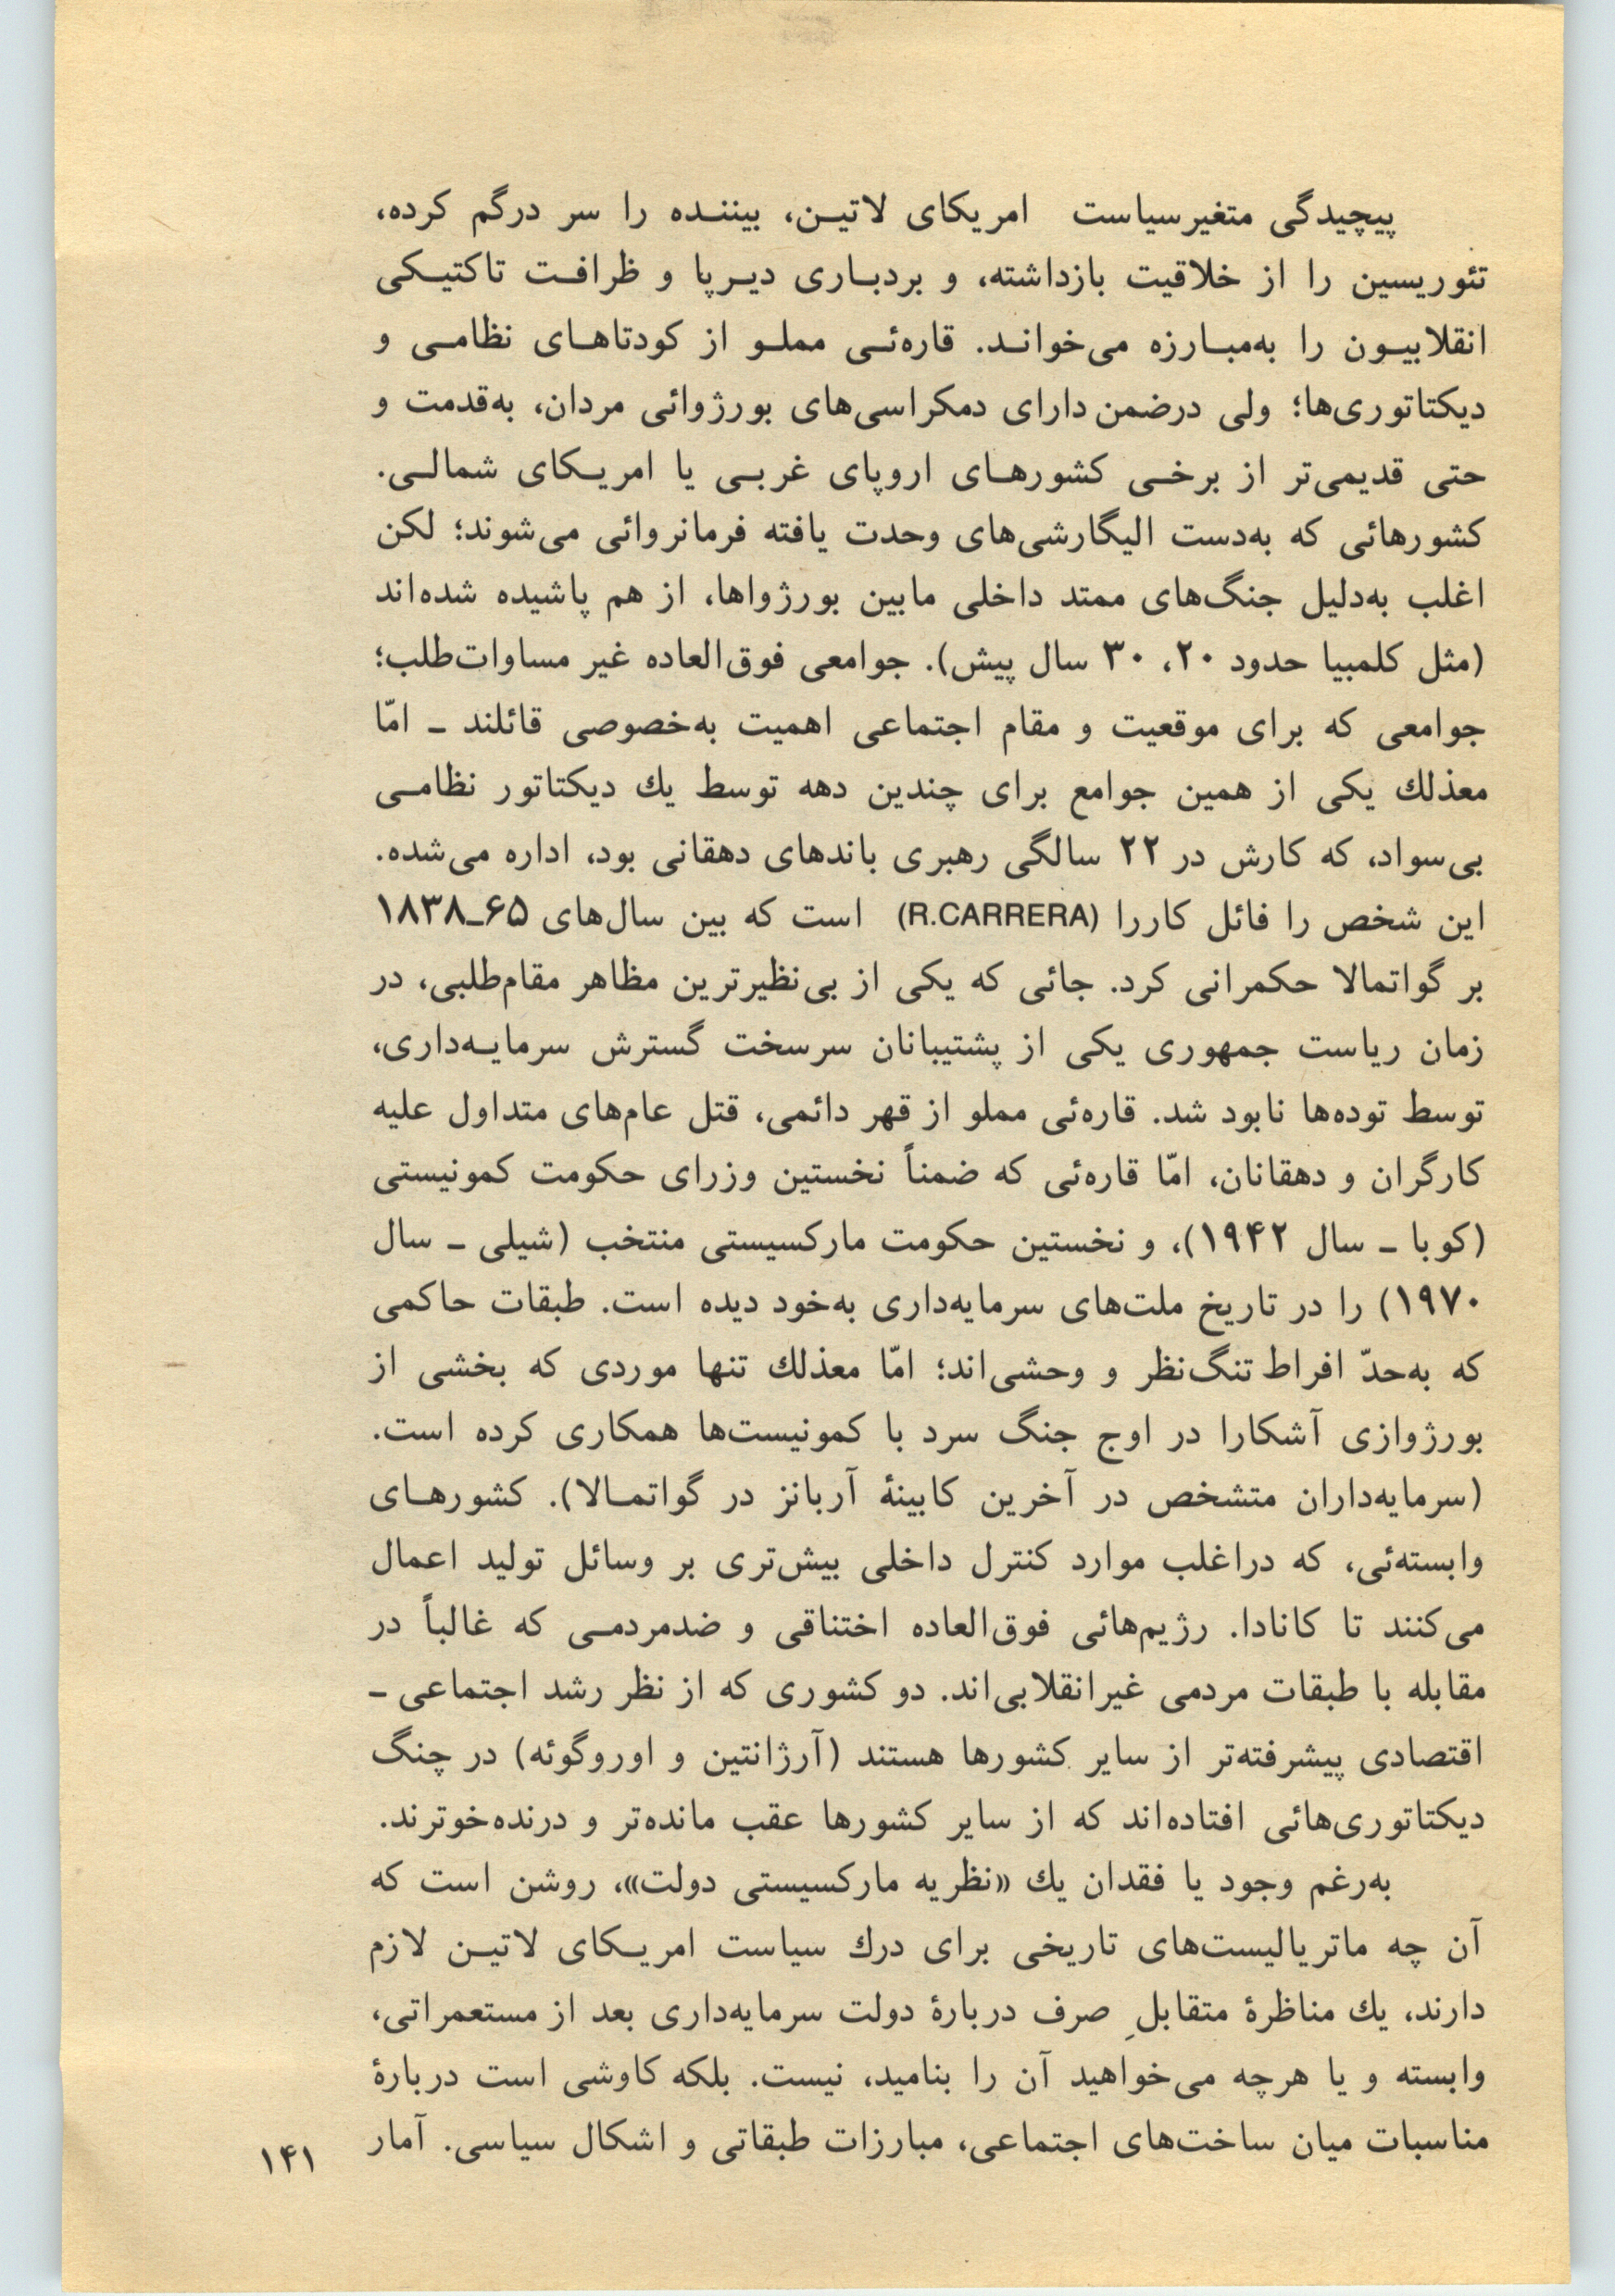 پیچیدگی متغیرسیاست امریکای لاتین، بیننده را سر درگم کرده،
تئوریسین را از خلاقیت بازداشته، و بردباری دیرپا و ظرافت تاکتیکی
انقلابیون را به‌مبارزه می‌خواند. قاره‌ئی مملو از کودتاهای نظامی و
دیکتاتوری‌ها؛ ولی درضمن دارای دمکراسی‌های بورژوائی مردان، به‌قدمت و
حتی قدیمی‌تر از برخی کشورهای اروپای غربی یا امریکای شمالی.
کشورهائی که به‌دست الیگارشی‌های وحدت یافته فرمانروائی می‌شوند؛ لکن
اغلب به‌دلیل جنگ‌های ممتد داخلی مابین بورژواها، از هم پاشیده شده‌اند
(مثل کلمبیا حدود ۲۰، ۳۰ سال پیش). جوامعی فوق‌العاده غیر مساوات‌طلب؛
جوامعی که برای موقعیت و مقام اجتماعی اهمیت به‌خصوصی قائلند ـ امّا
معذلك یکی از همین جوامع برای چندین دهه توسط یك دیکتاتور نظامی
بی‌سواد، که کارش در ۲۲ سالگی رهبری باندهای دهقانی بود، اداره می‌شده.
این شخص را فائل کاررا (R.CARRERA) است که بین سال‌های ۶۵ـ۱۸۳۸
بر گواتمالا حکمرانی کرد. جائی که یکی از بی‌نظیرترین مظاهر مقام‌طلبی، در
زمان ریاست جمهوری یکی از پشتیبانان سرسخت گسترش سرمایه‌داری،
توسط توده‌ها نابود شد. قاره‌ئی مملو از قهر دائمی، قتل عام‌های متداول علیه
کارگران و دهقانان، امّا قاره‌ئی که ضمناً نخستین وزرای حکومت کمونیستی
(کوبا ـ سال ۱۹۴۲)، و نخستین حکومت مارکسیستی منتخب (شیلی ـ سال
۱۹۷۰) را در تاریخ ملت‌های سرمایه‌داری به‌خود دیده است. طبقات حاکمی
که به‌حدّ افراط تنگ‌نظر و وحشی‌اند؛ امّا معذلك تنها موردی که بخشی از
بورژوازی آشکارا در اوج جنگ سرد با کمونیست‌ها همکاری کرده است.
(سرمایه‌داران متشخص در آخرین کابینهٔ آربانز در گواتمالا). کشورهای
وابسته‌ئی، که دراغلب موارد کنترل داخلی بیش‌تری بر وسائل تولید اعمال
می‌کنند تا کانادا. رژیم‌هائی فوق‌العاده اختناقی و ضدمردمی که غالباً در
مقابله با طبقات مردمی غیرانقلابی‌اند. دو کشوری که از نظر رشد اجتماعی ـ
اقتصادی پیشرفته‌تر از سایر کشورها هستند (آرژانتین و اوروگوئه) در چنگ
دیکتاتوری‌هائی افتاده‌اند که از سایر کشورها عقب مانده‌تر و درنده‌خوترند.
به‌رغم وجود یا فقدان یك «نظریه مارکسیستی دولت»، روشن است که
آن چه ماتریالیست‌های تاریخی برای درك سیاست امریکای لاتین لازم
دارند، یك مناظرهٔ متقابلِ صرف دربارهٔ دولت سرمایه‌داری بعد از مستعمراتی،
وابسته و یا هرچه می‌خواهید آن را بنامید، نیست. بلکه کاوشی است دربارهٔ
مناسبات میان ساخت‌های اجتماعی، مبارزات طبقاتی و اشکال سیاسی. آمار
۱۴۱